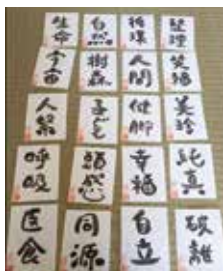 生命 自然 循環 整理
宇宙 樹森 人間 笑福
人類 子ども 健脚 美
呼吸 頭感 幸福 純真
医食 同源 自立 破離